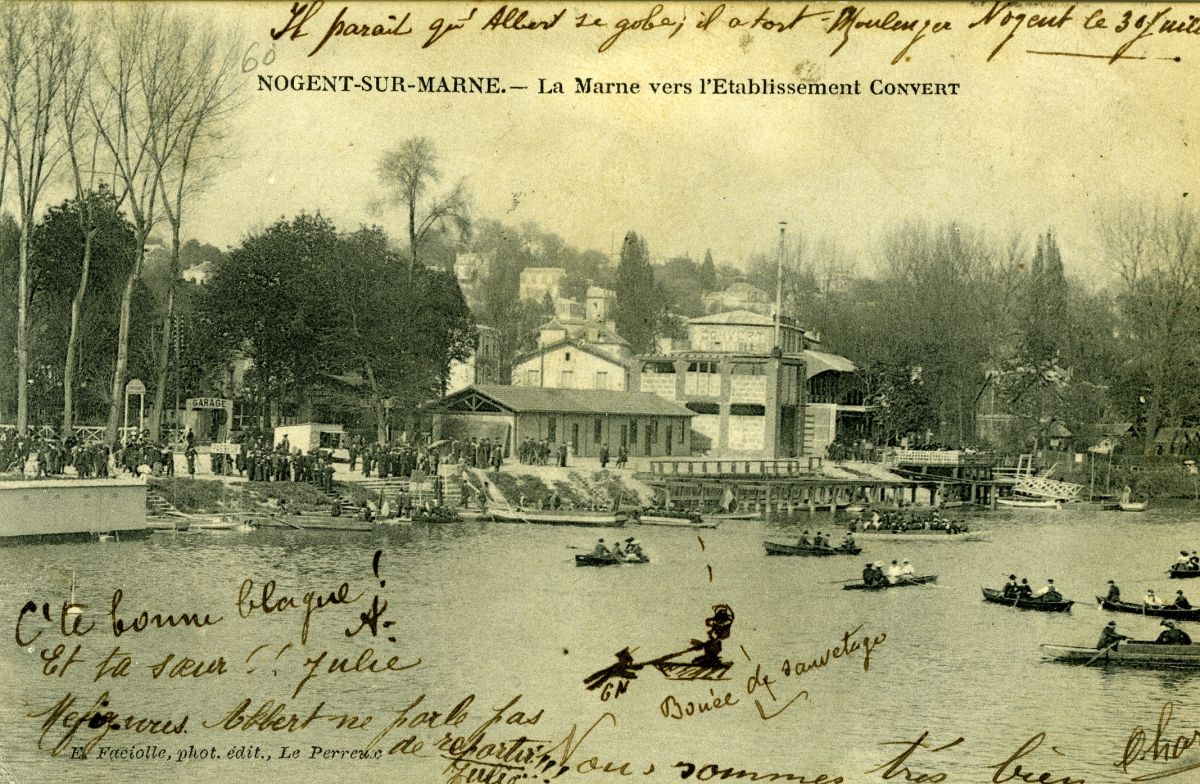 Il parait qu'Albert se gobe; il a tort - Moulenger Nogent le 30 Juill
60
NOGENT-SUR-MARNE. — La Marne vers l'Etablissement CONVERT
GARAGE
C'te bonne blague!
A.
Et ta sœur!! Julie
Bouée de sauvetage
GN
Méfiez-vous Albert ne parle pas
de repartir
Julie!!!
E. Faciolle, phot. édit., Le Perreux
Nous sommes très bien Char